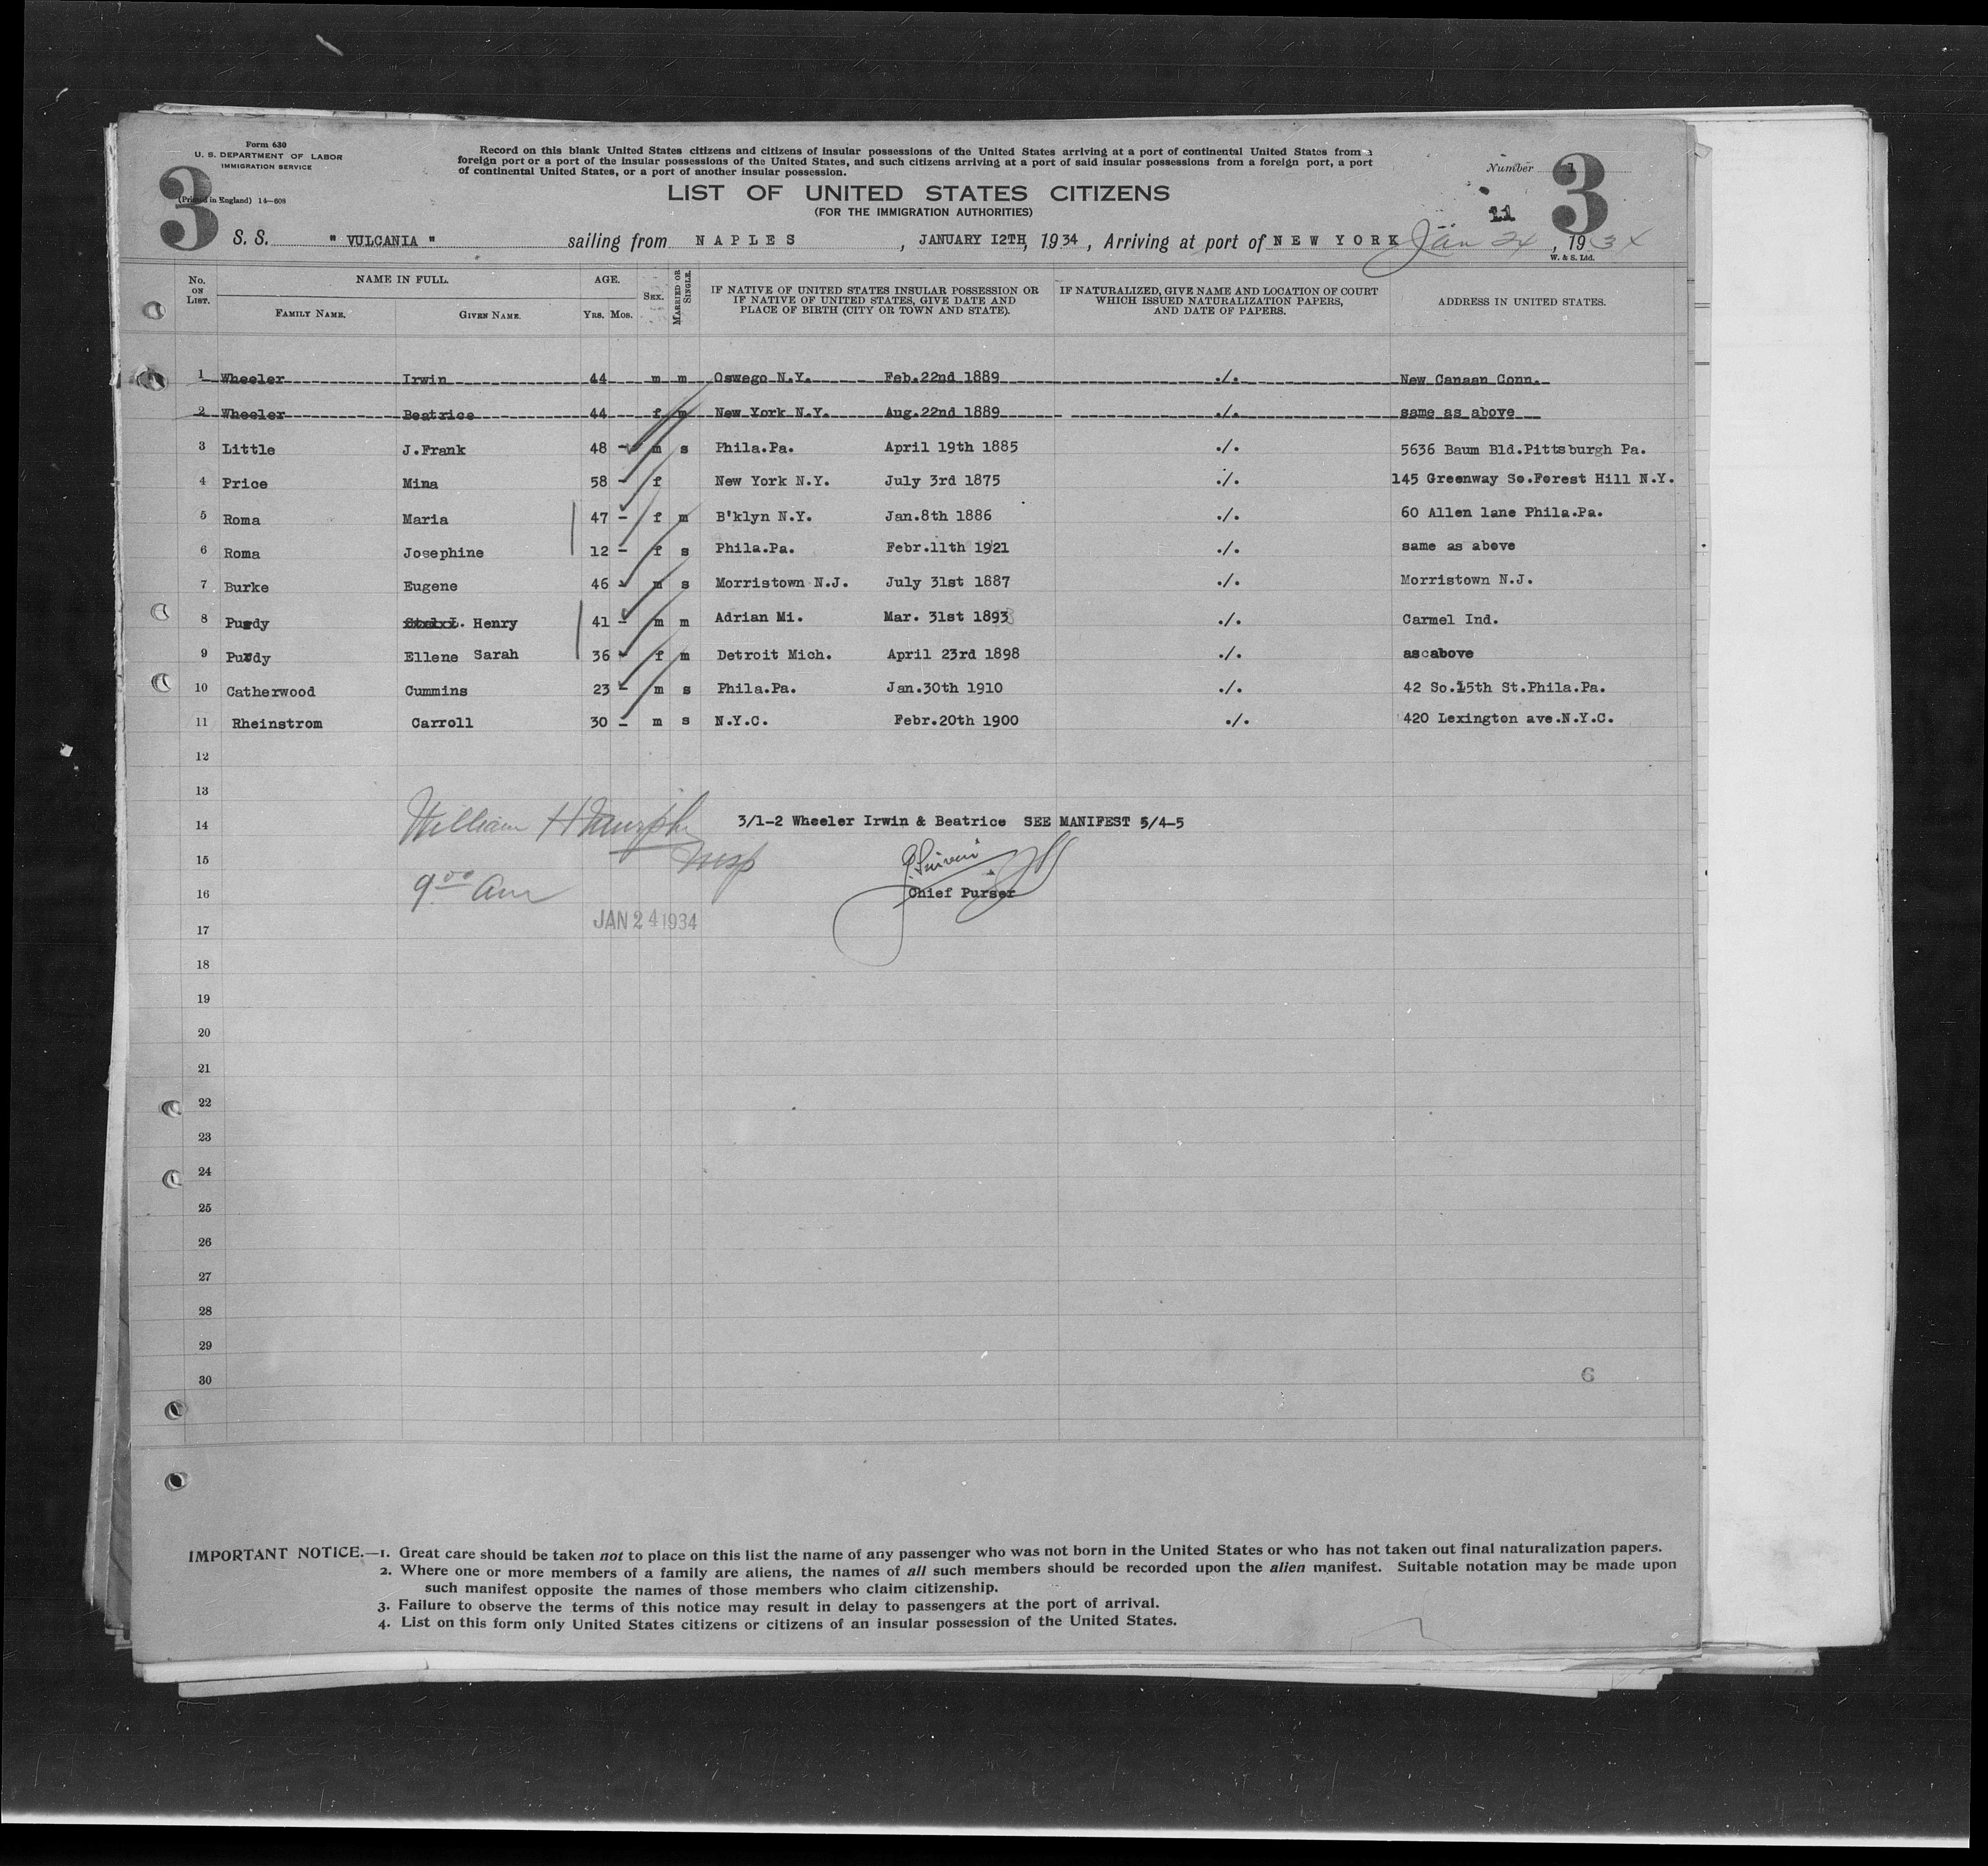 Form 630
U. S. DEPARTMENT OF LABOR
IMMIGRATION SERVICE
(Printed in England) 14—608
3
Record on this blank United States citizens and citizens of insular possessions of the United States arriving at a port of continental United States from a
foreign port or a port of the insular possessions of the United States, and such citizens arriving at a port of said insular possessions from a foreign port, a port
of continental United States, or a port of another insular possession.
LIST OF UNITED STATES CITIZENS
(FOR THE IMMIGRATION AUTHORITIES)
Number 1
3
11
S. S. " VULCANIA " sailing from NAPLES, JANUARY 12TH, 1934, Arriving at port of NEW YORK Jan 24, 1934
W. & S. Ltd.
No. ON LIST. NAME IN FULL. AGE. SEX. MARRIED OR SINGLE. IF NATIVE OF UNITED STATES INSULAR POSSESSION OR IF NATIVE OF UNITED STATES, GIVE DATE AND PLACE OF BIRTH (CITY OR TOWN AND STATE). IF NATURALIZED, GIVE NAME AND LOCATION OF COURT WHICH ISSUED NATURALIZATION PAPERS, AND DATE OF PAPERS. ADDRESS IN UNITED STATES.
FAMILY NAME. GIVEN NAME. YRS. MOS.
1 Wheeler Irwin 44 m m Oswego N.Y. Feb.22nd 1889 ./. New Canaan Conn.
2 Wheeler Beatrice 44 f m New York N.Y. Aug.22nd 1889 ./. same as above
3 Little J.Frank 48 - m s Phila.Pa. April 19th 1885 ./. 5636 Baum Bld.Pittsburgh Pa.
4 Price Mina 58 - f New York N.Y. July 3rd 1875 ./. 145 Greenway So.Forest Hill N.Y.
5 Roma Maria 47 - f m B'klyn N.Y. Jan.8th 1886 ./. 60 Allen lane Phila.Pa.
6 Roma Josephine 12 - f s Phila.Pa. Febr.11th 1921 ./. same as above
7 Burke Eugene 46 - m s Morristown N.J. July 31st 1887 ./. Morristown N.J.
8 Purdy L. Henry 41 - m m Adrian Mi. Mar. 31st 1893 ./. Carmel Ind.
9 Purdy Ellene Sarah 36 - f m Detroit Mich. April 23rd 1898 ./. as above
10 Catherwood Cummins 23 - m s Phila.Pa. Jan.30th 1910 ./. 42 So.15th St.Phila.Pa.
11 Rheinstrom Carroll 30 - m s N.Y.C. Febr.20th 1900 ./. 420 Lexington ave.N.Y.C.
12
13
14 William H Murphy 3/1-2 Wheeler Irwin & Beatrice SEE MANIFEST 5/4-5
15 Insp
16 9 00 Am Chief Purser
JAN 24 1934
17
18
19
20
21
22
23
24
25
26
27
28
29
30
6
IMPORTANT NOTICE.—1. Great care should be taken not to place on this list the name of any passenger who was not born in the United States or who has not taken out final naturalization papers.
2. Where one or more members of a family are aliens, the names of all such members should be recorded upon the alien manifest. Suitable notation may be made upon
such manifest opposite the names of those members who claim citizenship.
3. Failure to observe the terms of this notice may result in delay to passengers at the port of arrival.
4. List on this form only United States citizens or citizens of an insular possession of the United States.